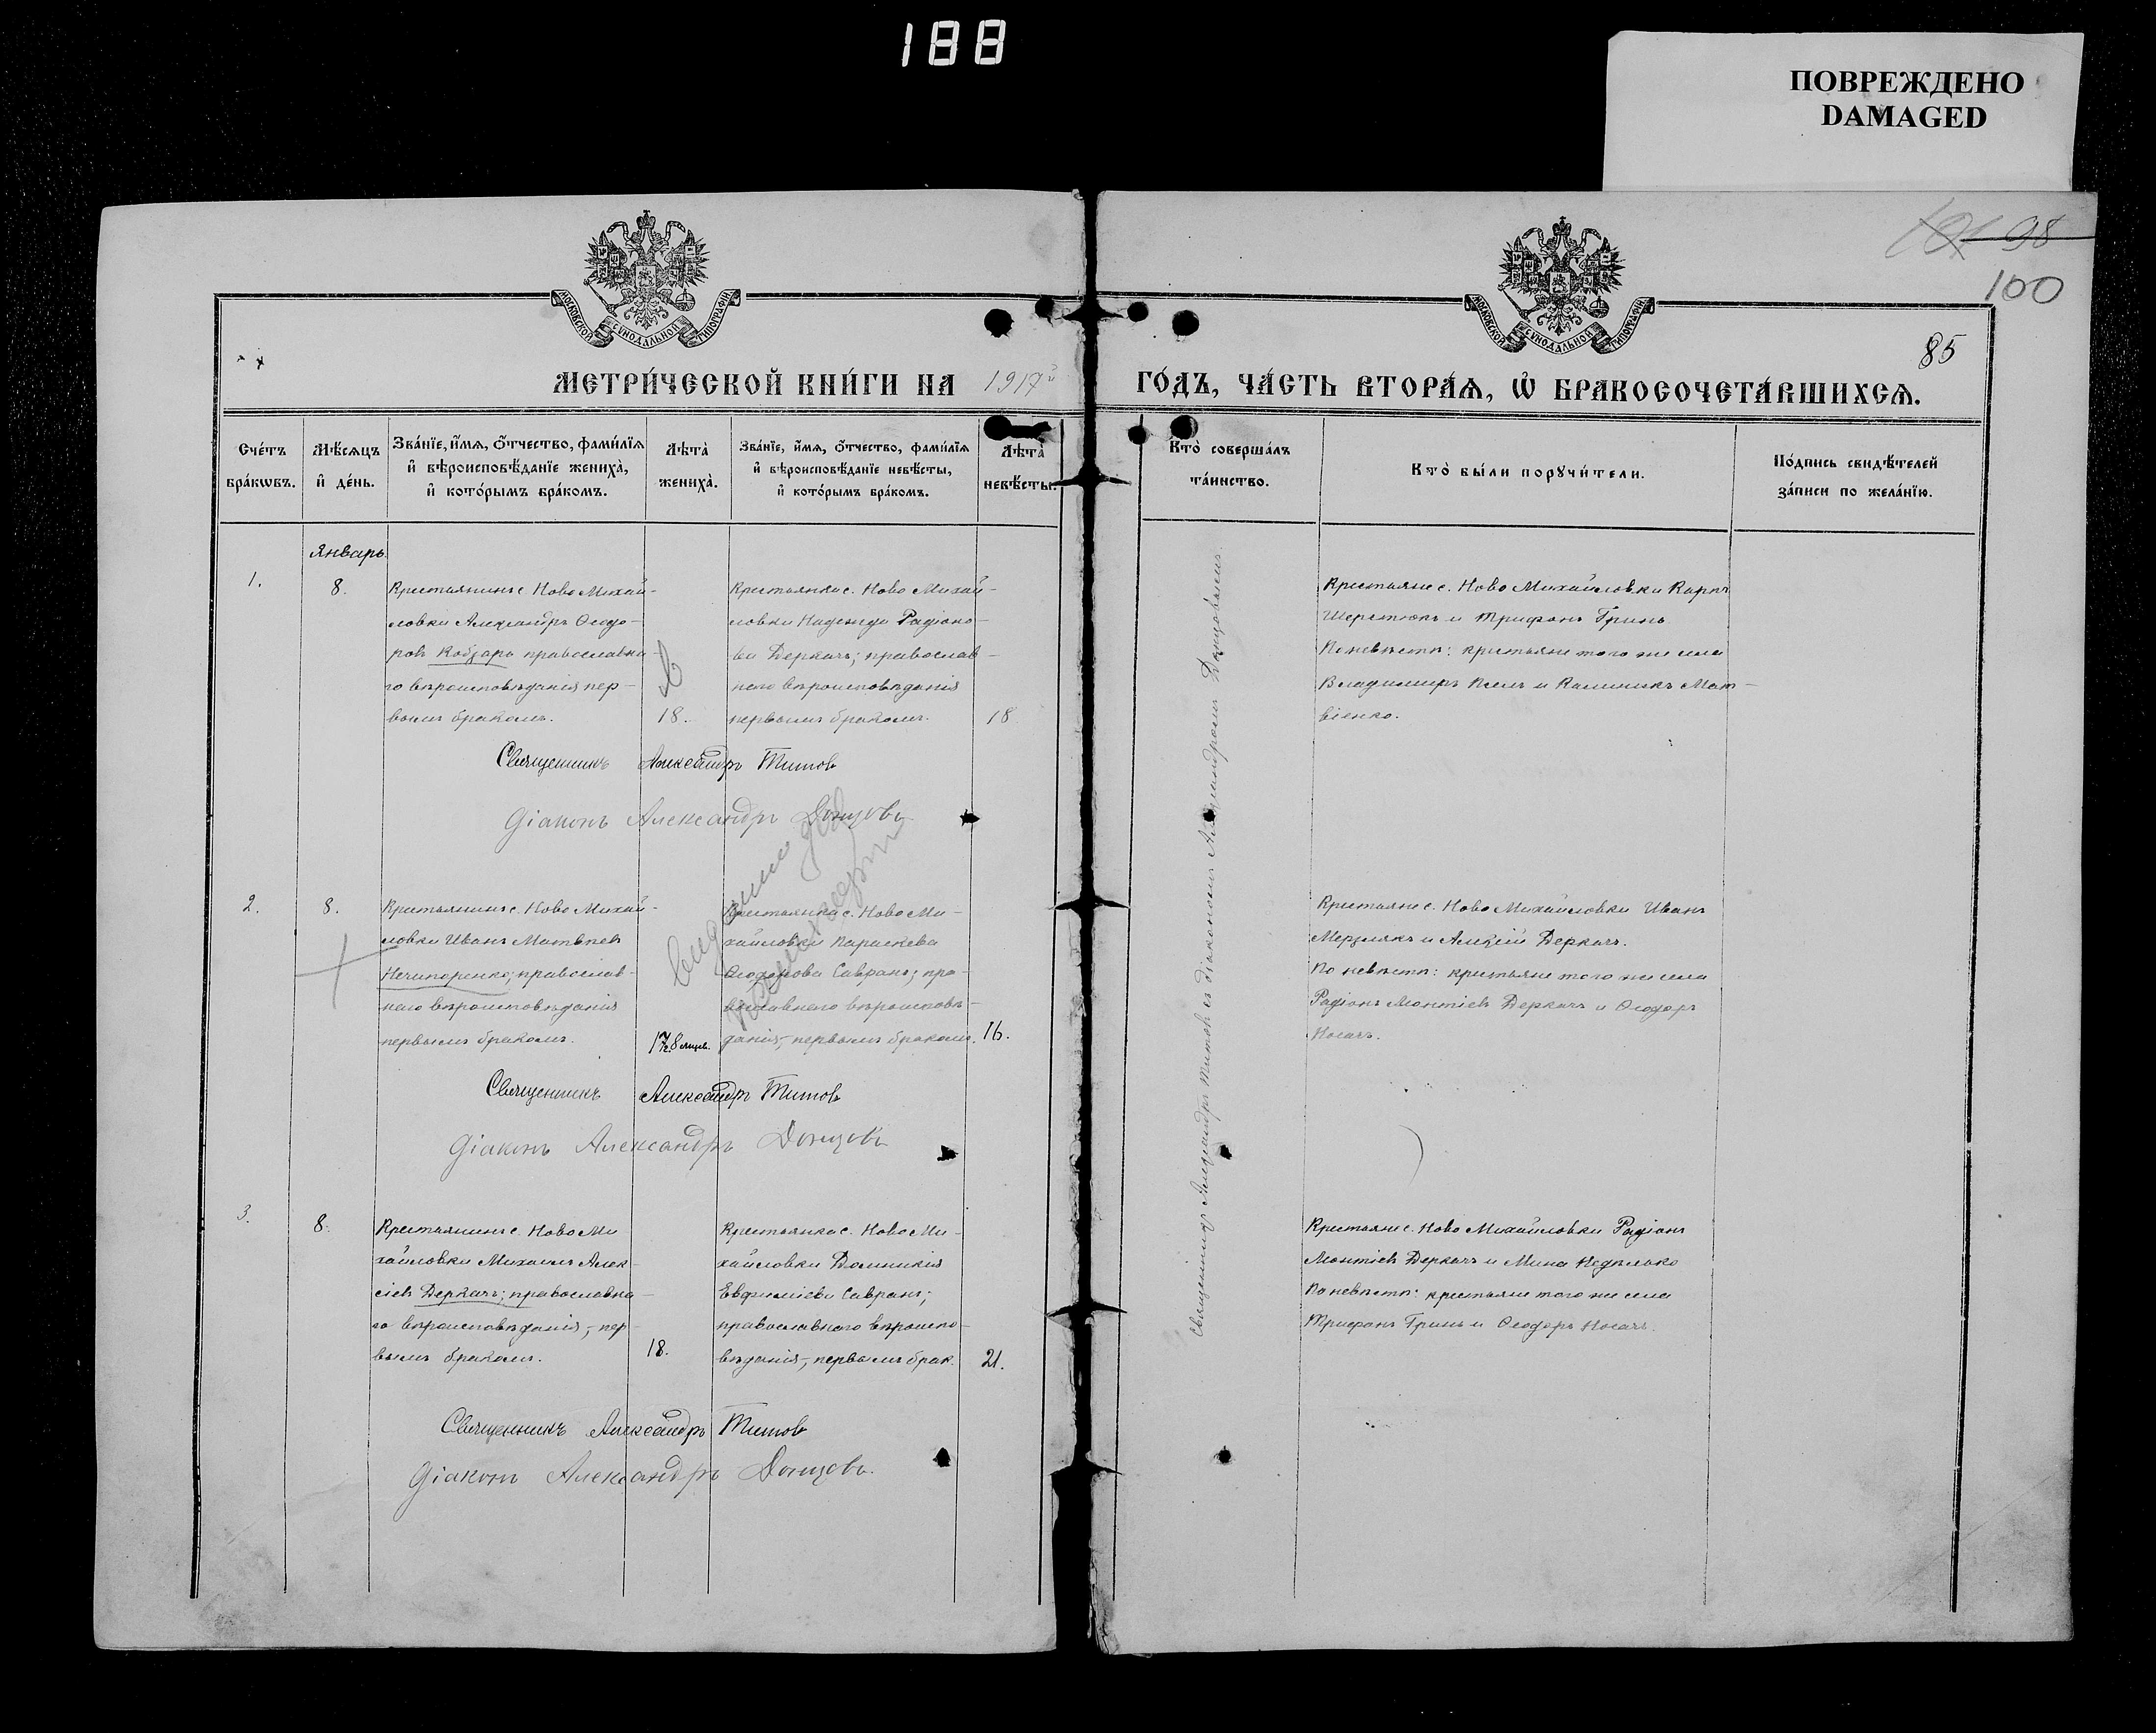 188
ПОВРЕЖДЕНО
DAMAGED
98
100
85
МОСКОВСКОЙ СѴНОДАЛЬНОЙ ТИПОГРАФІИ
МОСКОВСКОЙ СѴНОДАЛЬНОЙ ТИПОГРАФІИ
МЕТРИ́ЧЕСКОЙ КНИ́ГИ НА 1917й ГО́ДЪ, ЧА́СТЬ ВТОРА́Ѧ, Ѡ҆ БРАКОСОЧЕТА́ВШИХСѦ.
Сче́тъ бра́кѡвъ.
Мѣ́сѧцъ и҆ де́нь.
Зва́нїе, и҆́мѧ, ѻ҆́тчество, фами́лїѧ и҆ вѣроисповѣ́данїе жениха̀, и҆ кото́рымъ бра́комъ.
Лѣта̀ жениха̀.
Зва́нїе, и҆́мѧ, ѻ҆́тчество, фами́лїѧ и҆ вѣроисповѣ́данїе невѣ́сты, и҆ кото́рымъ бра́комъ.
Лѣта̀ невѣ́сты.
Кто̀ соверша́лъ та́инство.
Кто̀ бы́ли порꙋчи́тели.
По́дпись свидѣ́телей за́писи по жела́нїю.
Январь.
1.
8.
Крестьянинъ с. Ново Михай-
ловки Александръ Ѳеодо-
ровъ Кобзарь православна-
го вѣроисповѣданія пер-
вымъ бракомъ.
18.
Крестьянка с. Ново Михай-
ловки Надежда Радіоно-
ва Деркачъ; православ-
наго вѣроисповѣданія
первымъ бракомъ.
18
Крестьяне с. Ново Михайловки Карпъ
Шерстюкъ и Трифонъ Гринь
По невѣстѣ: крестьяне того же села
Владимиръ и Калиникъ Мат-
віенко.
Священникъ Александръ Титовъ
Діаконъ Александръ Донцовъ
2.
8.
Крестьянинъ с. Ново Михай-
ловки Иванъ Матвѣевъ
Нечипоренко; православ-
наго вѣроисповѣданія
первымъ бракомъ.
Крестьянка с. Ново Ми-
хайловки Параскева
Ѳеодорова Савранъ; пра-
вославнаго вѣроисповѣ-
данія, первымъ бракомъ.
16.
Крестьяне с. Ново Михайловки Иванъ
Мерзлякъ и Алексій Деркачъ.
По невѣстѣ: крестьяне того же села
Радіонъ Монтіевъ Деркачъ и Ѳеодоръ
Носачъ.
Священникъ Александръ Титовъ
Діаконъ Александръ Донцовъ
3.
8.
Крестьянинъ с. Ново Ми
хайловки Михаилъ Алек-
сіевъ Деркачъ; православна-
го вѣроисповѣданія, пер-
вымъ бракомъ.
18.
Крестьянка с. Ново Ми-
хайловки Домникія
Евфиміева Савранъ;
православнаго вѣроиспо-
вѣданія, первымъ брак.
21.
Крестьяне с. Ново Михайловки Радіонъ
Монтіевъ Деркачъ и Мина Недѣлько
По невѣстѣ: крестьяне того же села
Трифонъ Гринь и Ѳеодоръ Носачъ.
Священникъ Александръ Титовъ
Діаконъ Александръ Донцовъ
Священникъ Александръ Титовъ съ діакономъ Александромъ Донцовымъ.